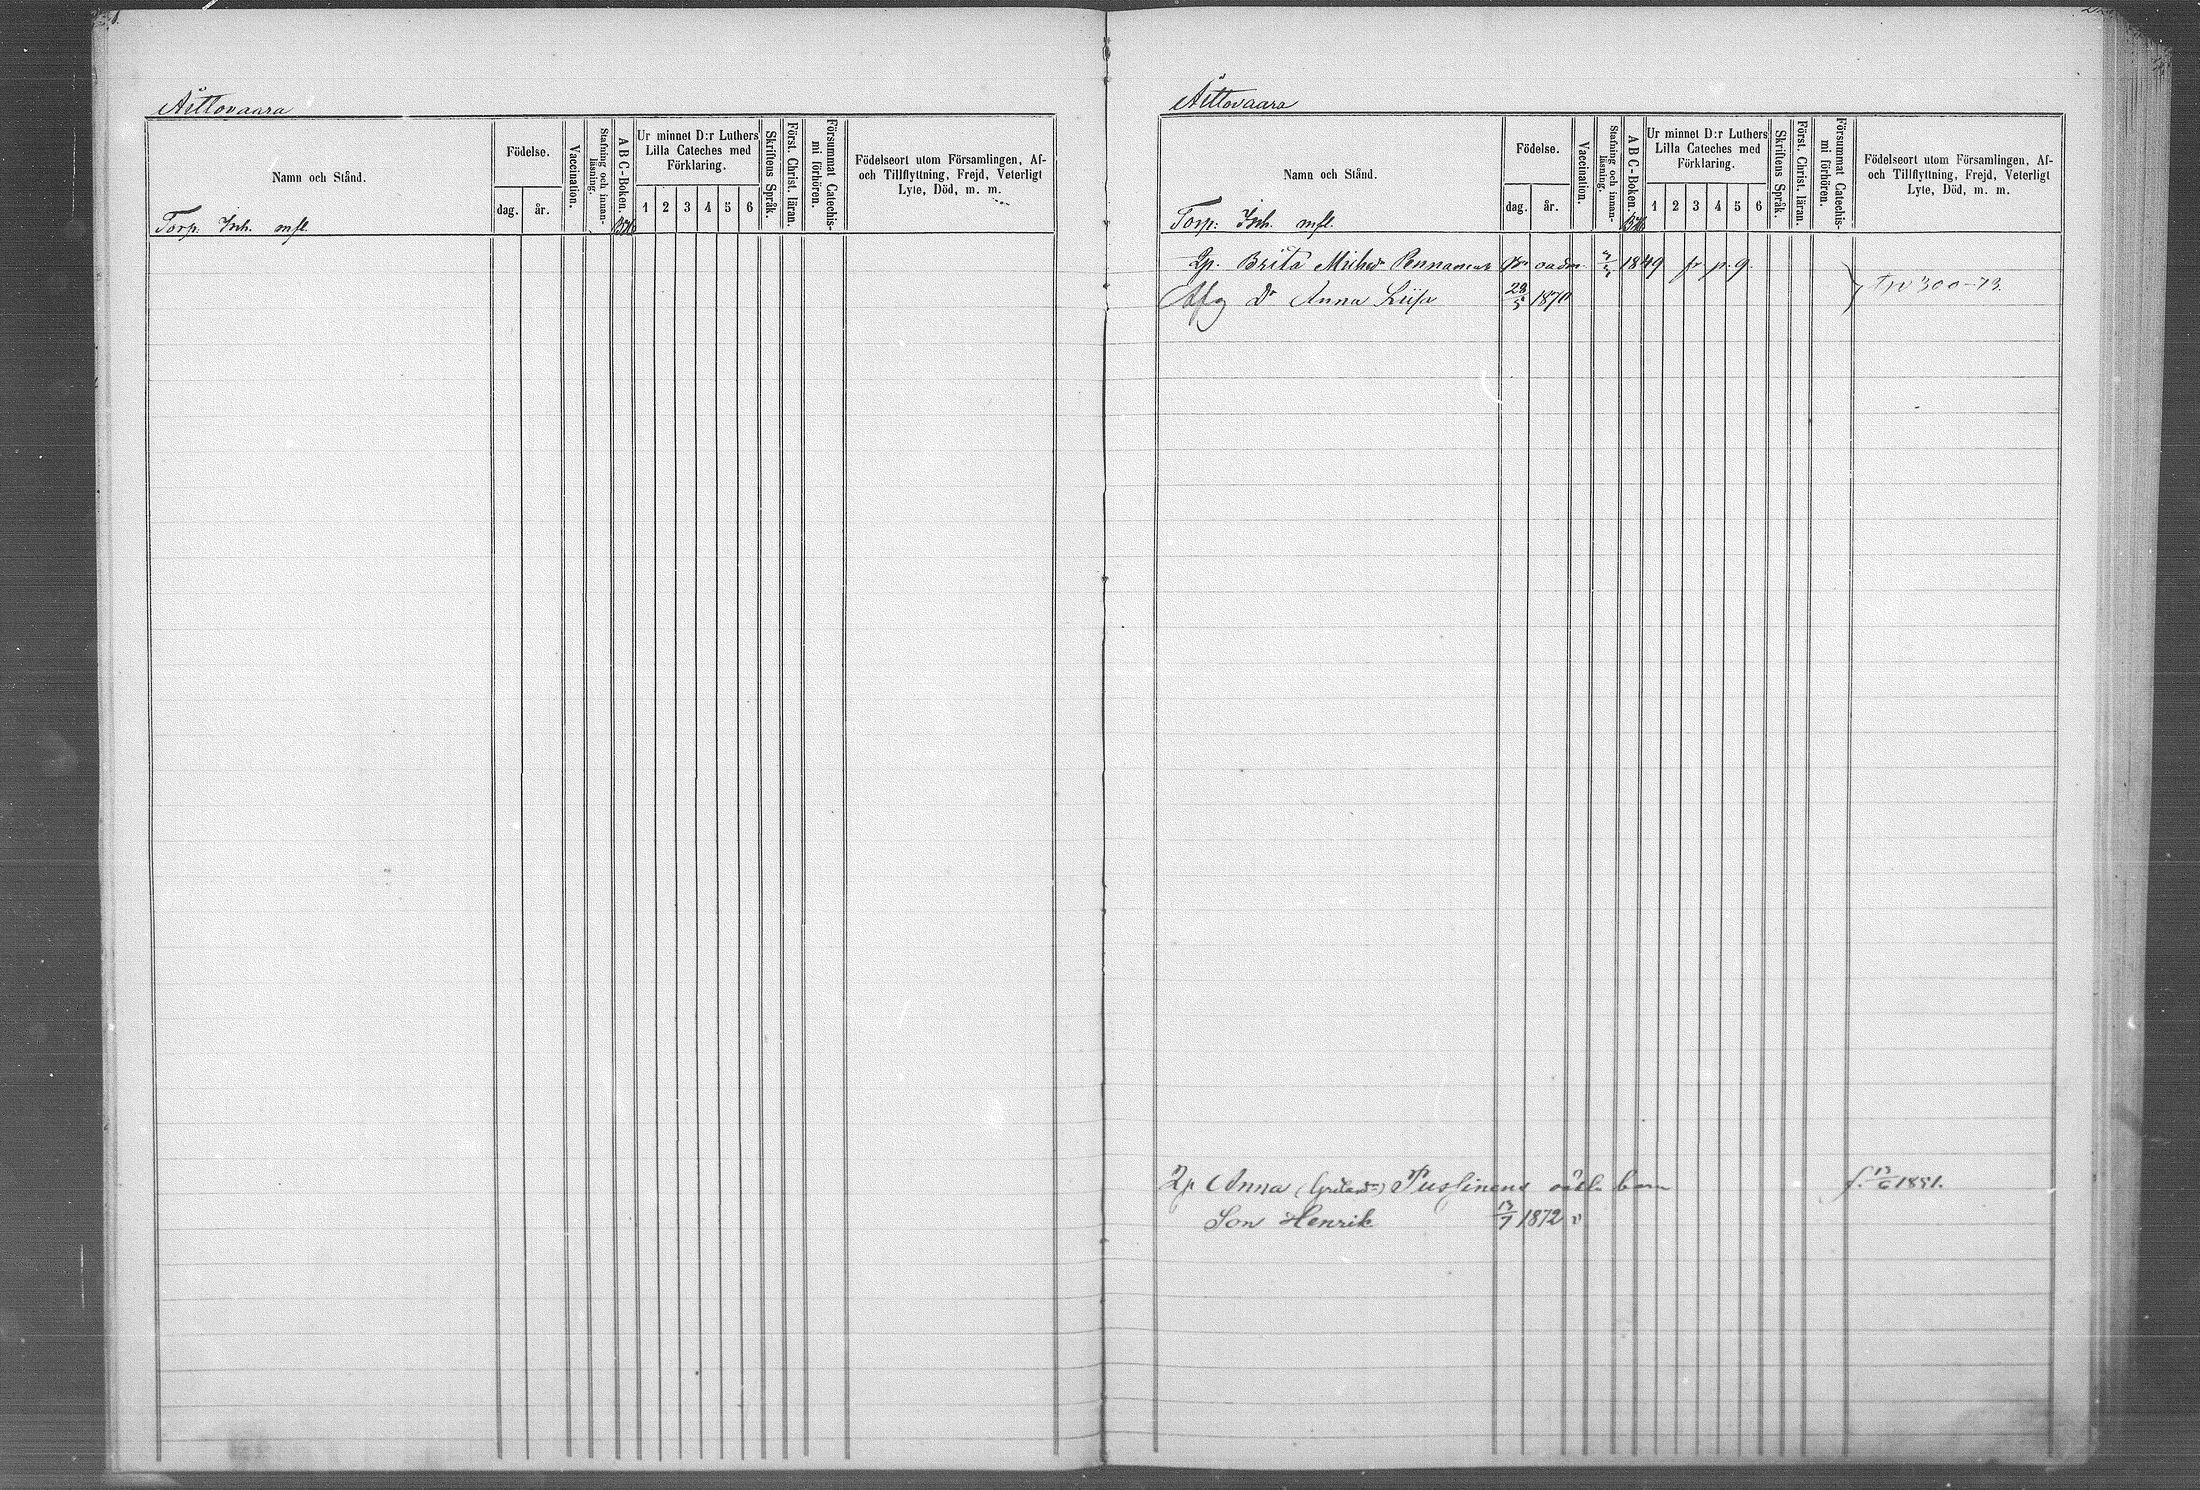 Aittovaara
Namn och Stånd.
Födelse.
dag. år.
Vaccination.
Stafning och innanläsning.
A B C-Boken.
Ur minnet D:r Luthers
Lilla Cateches med
Förklaring.
1 2 3 4 5 6
Skriftens Språk.
Först. Christ. läran.
Försummat Catechismi förhören.
Födelseort utom Församlingen, Af-
och Tillflyttning, Frejd, Veterligt
Lyte, Död, m. m.
Torp: Inh. mfl.
Aittovaara
Namn och Stånd.
Födelse.
dag. år.
Vaccination.
Stafning och innanläsning.
A B C-Boken.
Ur minnet D:r Luthers
Lilla Cateches med
Förklaring.
1 2 3 4 5 6
Skriftens Språk.
Först. Christ. läran.
Försummat Catechismi förhören.
Födelseort utom Församlingen, Af-
och Tillflyttning, Frejd, Veterligt
Lyte, Död, m. m.
Torp: Inh. mfl.
Lp. Brita Michsdr Pennanens 1849 300-73.
Dr Anna Liisa 28/5 1870
Lp Anna Pussinens oäkt. barn f. 13/6 1851.
Son Henrik 13/7 1872 v